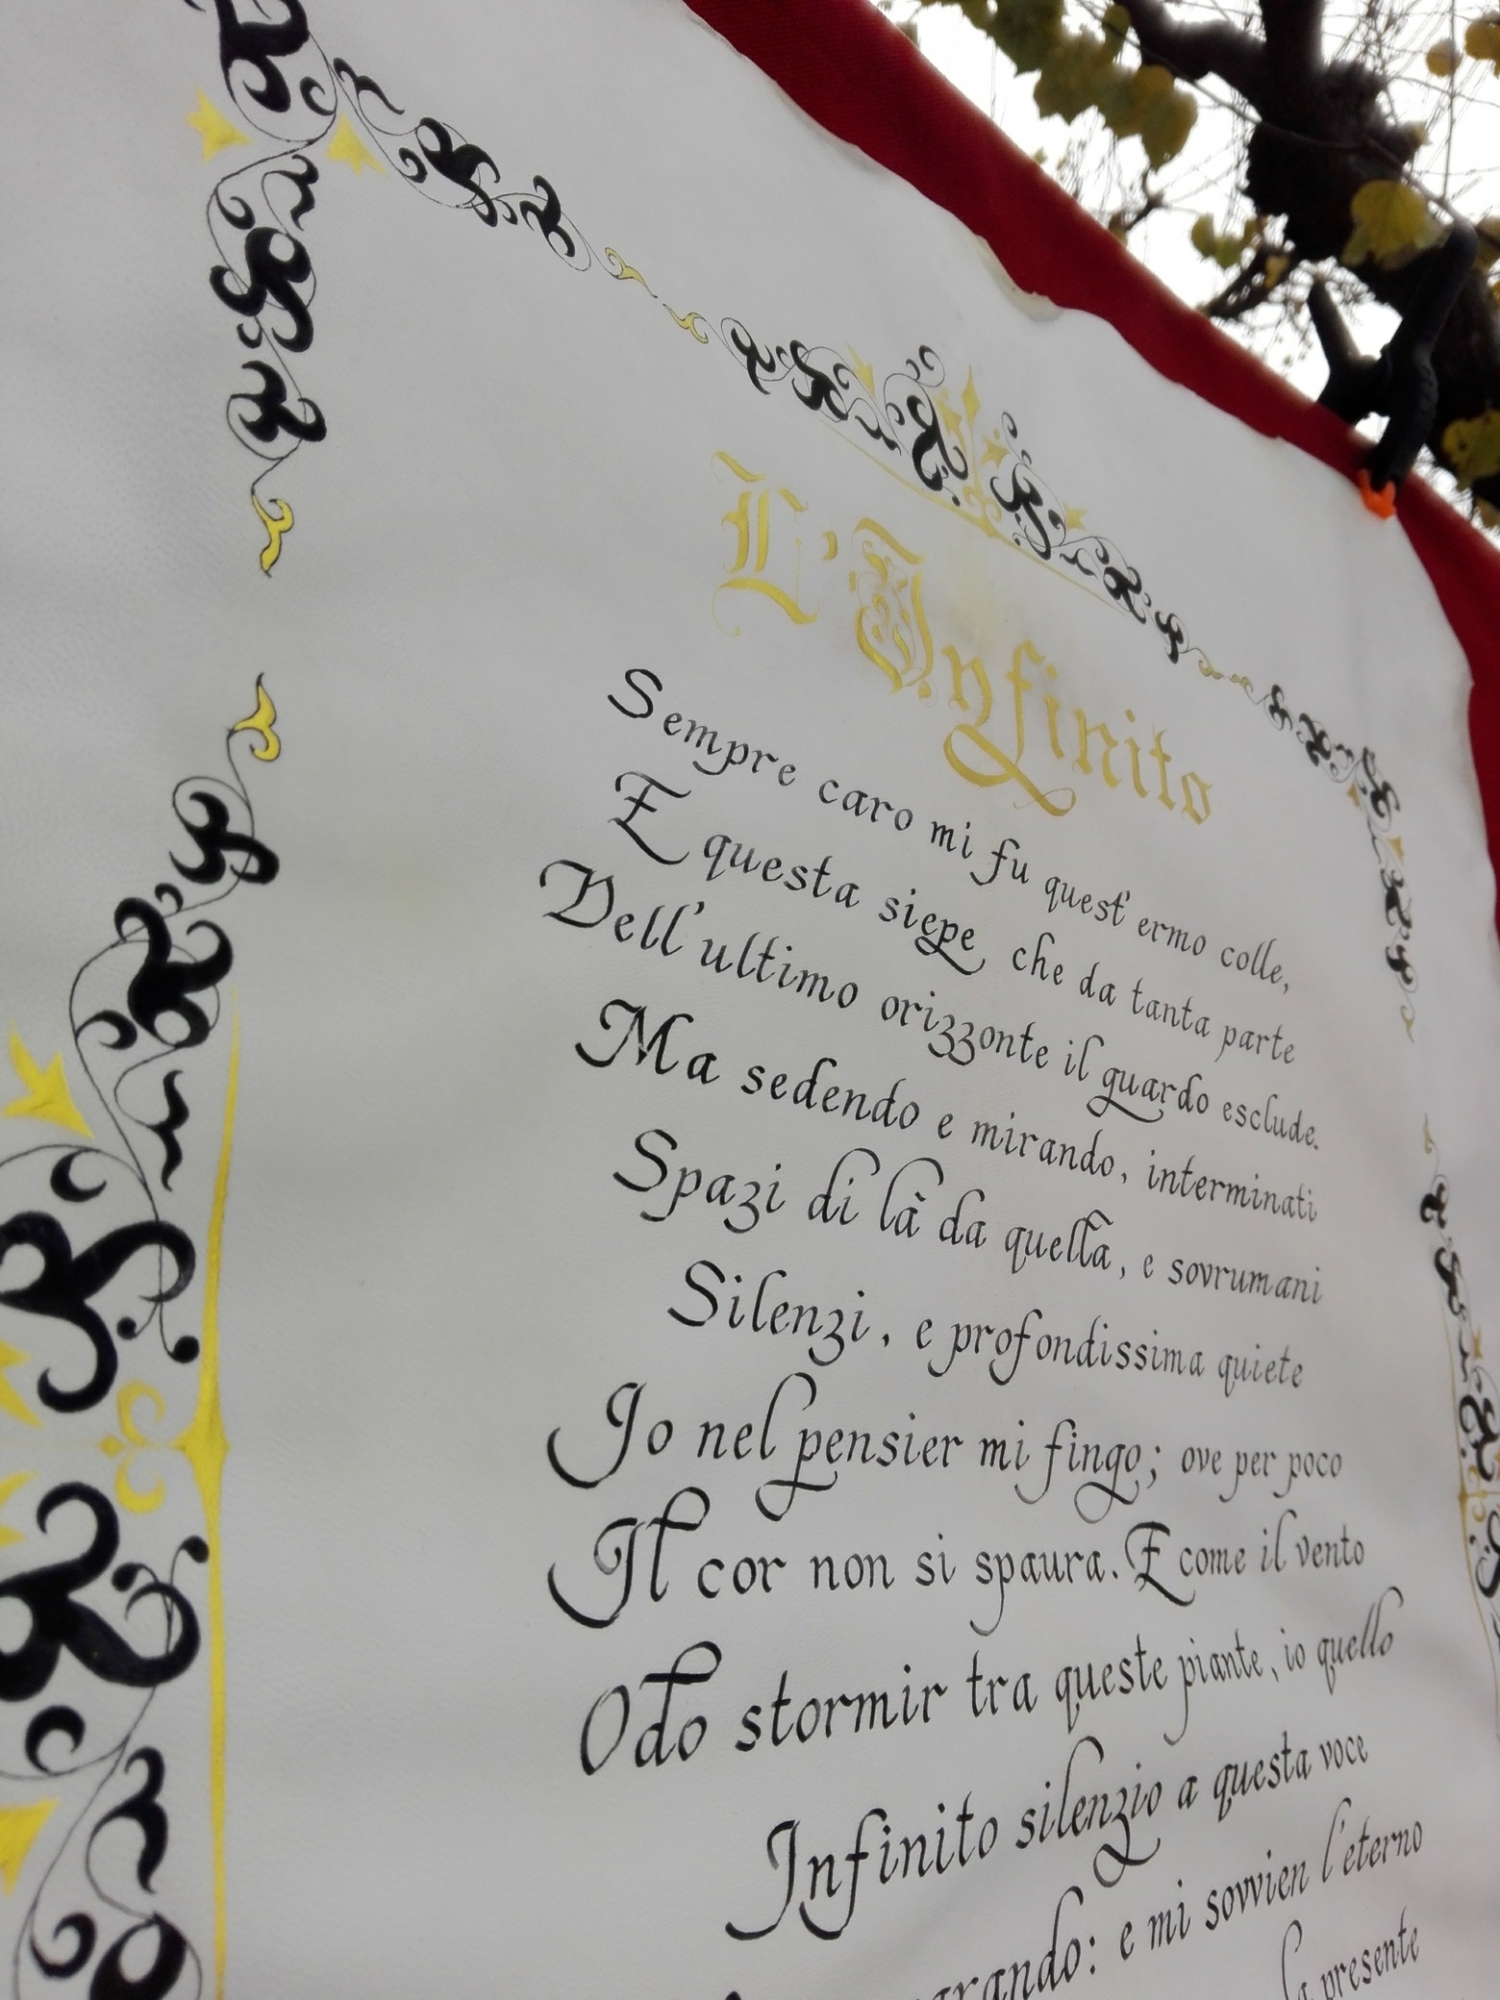 L'Infinito
Sempre caro mi fu quest' ermo colle,
E questa siepe, che da tanta parte
Dell'ultimo orizzonte il guardo esclude.
Ma sedendo e mirando, interminati
Spazi di là da quella, e sovrumani
Silenzi, e profondissima quiete
Io nel pensier mi fingo; ove per poco
Il cor non si spaura. E come il vento
Odo stormir tra queste piante, io quello
Infinito silenzio a questa voce
arando: e mi sovvien l'eterno
la presente